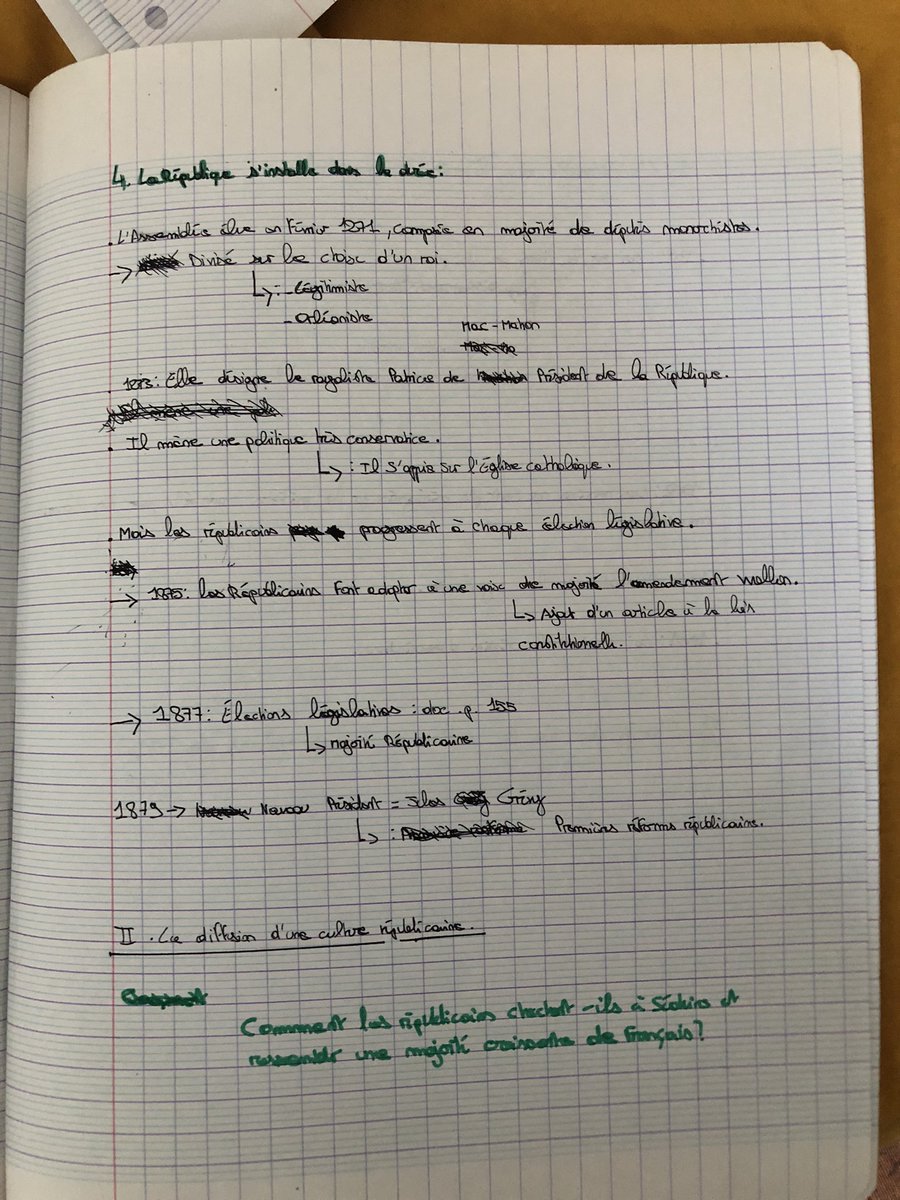 4. La République s'installe dans la durée :
. L'Assemblée élue en Février 1871, composée en majorité de députés monarchistes.
→ Divisé sur le choix d'un roi.
↳ : - Légitimiste
- Orléaniste
Mac-Mahon
1873 : Elle désigne le royaliste Patrice de Président de la République.
. Il mène une politique très conservatrice.
↳ : Il s'appuie sur l'Église catholique.
. Mais les républicains progressent à chaque élection législative.
→ 1875 : les Républicains font adopter à une voix de majorité l'amendement Wallon.
↳ Ajout d'un article à la lois
constitutionnelle.
→ 1877 : Élections législatives : doc. p. 155
↳ majorité Républicaine
1879 → Nouveau Président = Jules Grévy
↳ : Premières réformes républicaine.
II . La diffusion d'une culture républicaine.
Comment les républicains cherchent-ils à Séduire et
rassembler une majorité croissante de Français ?